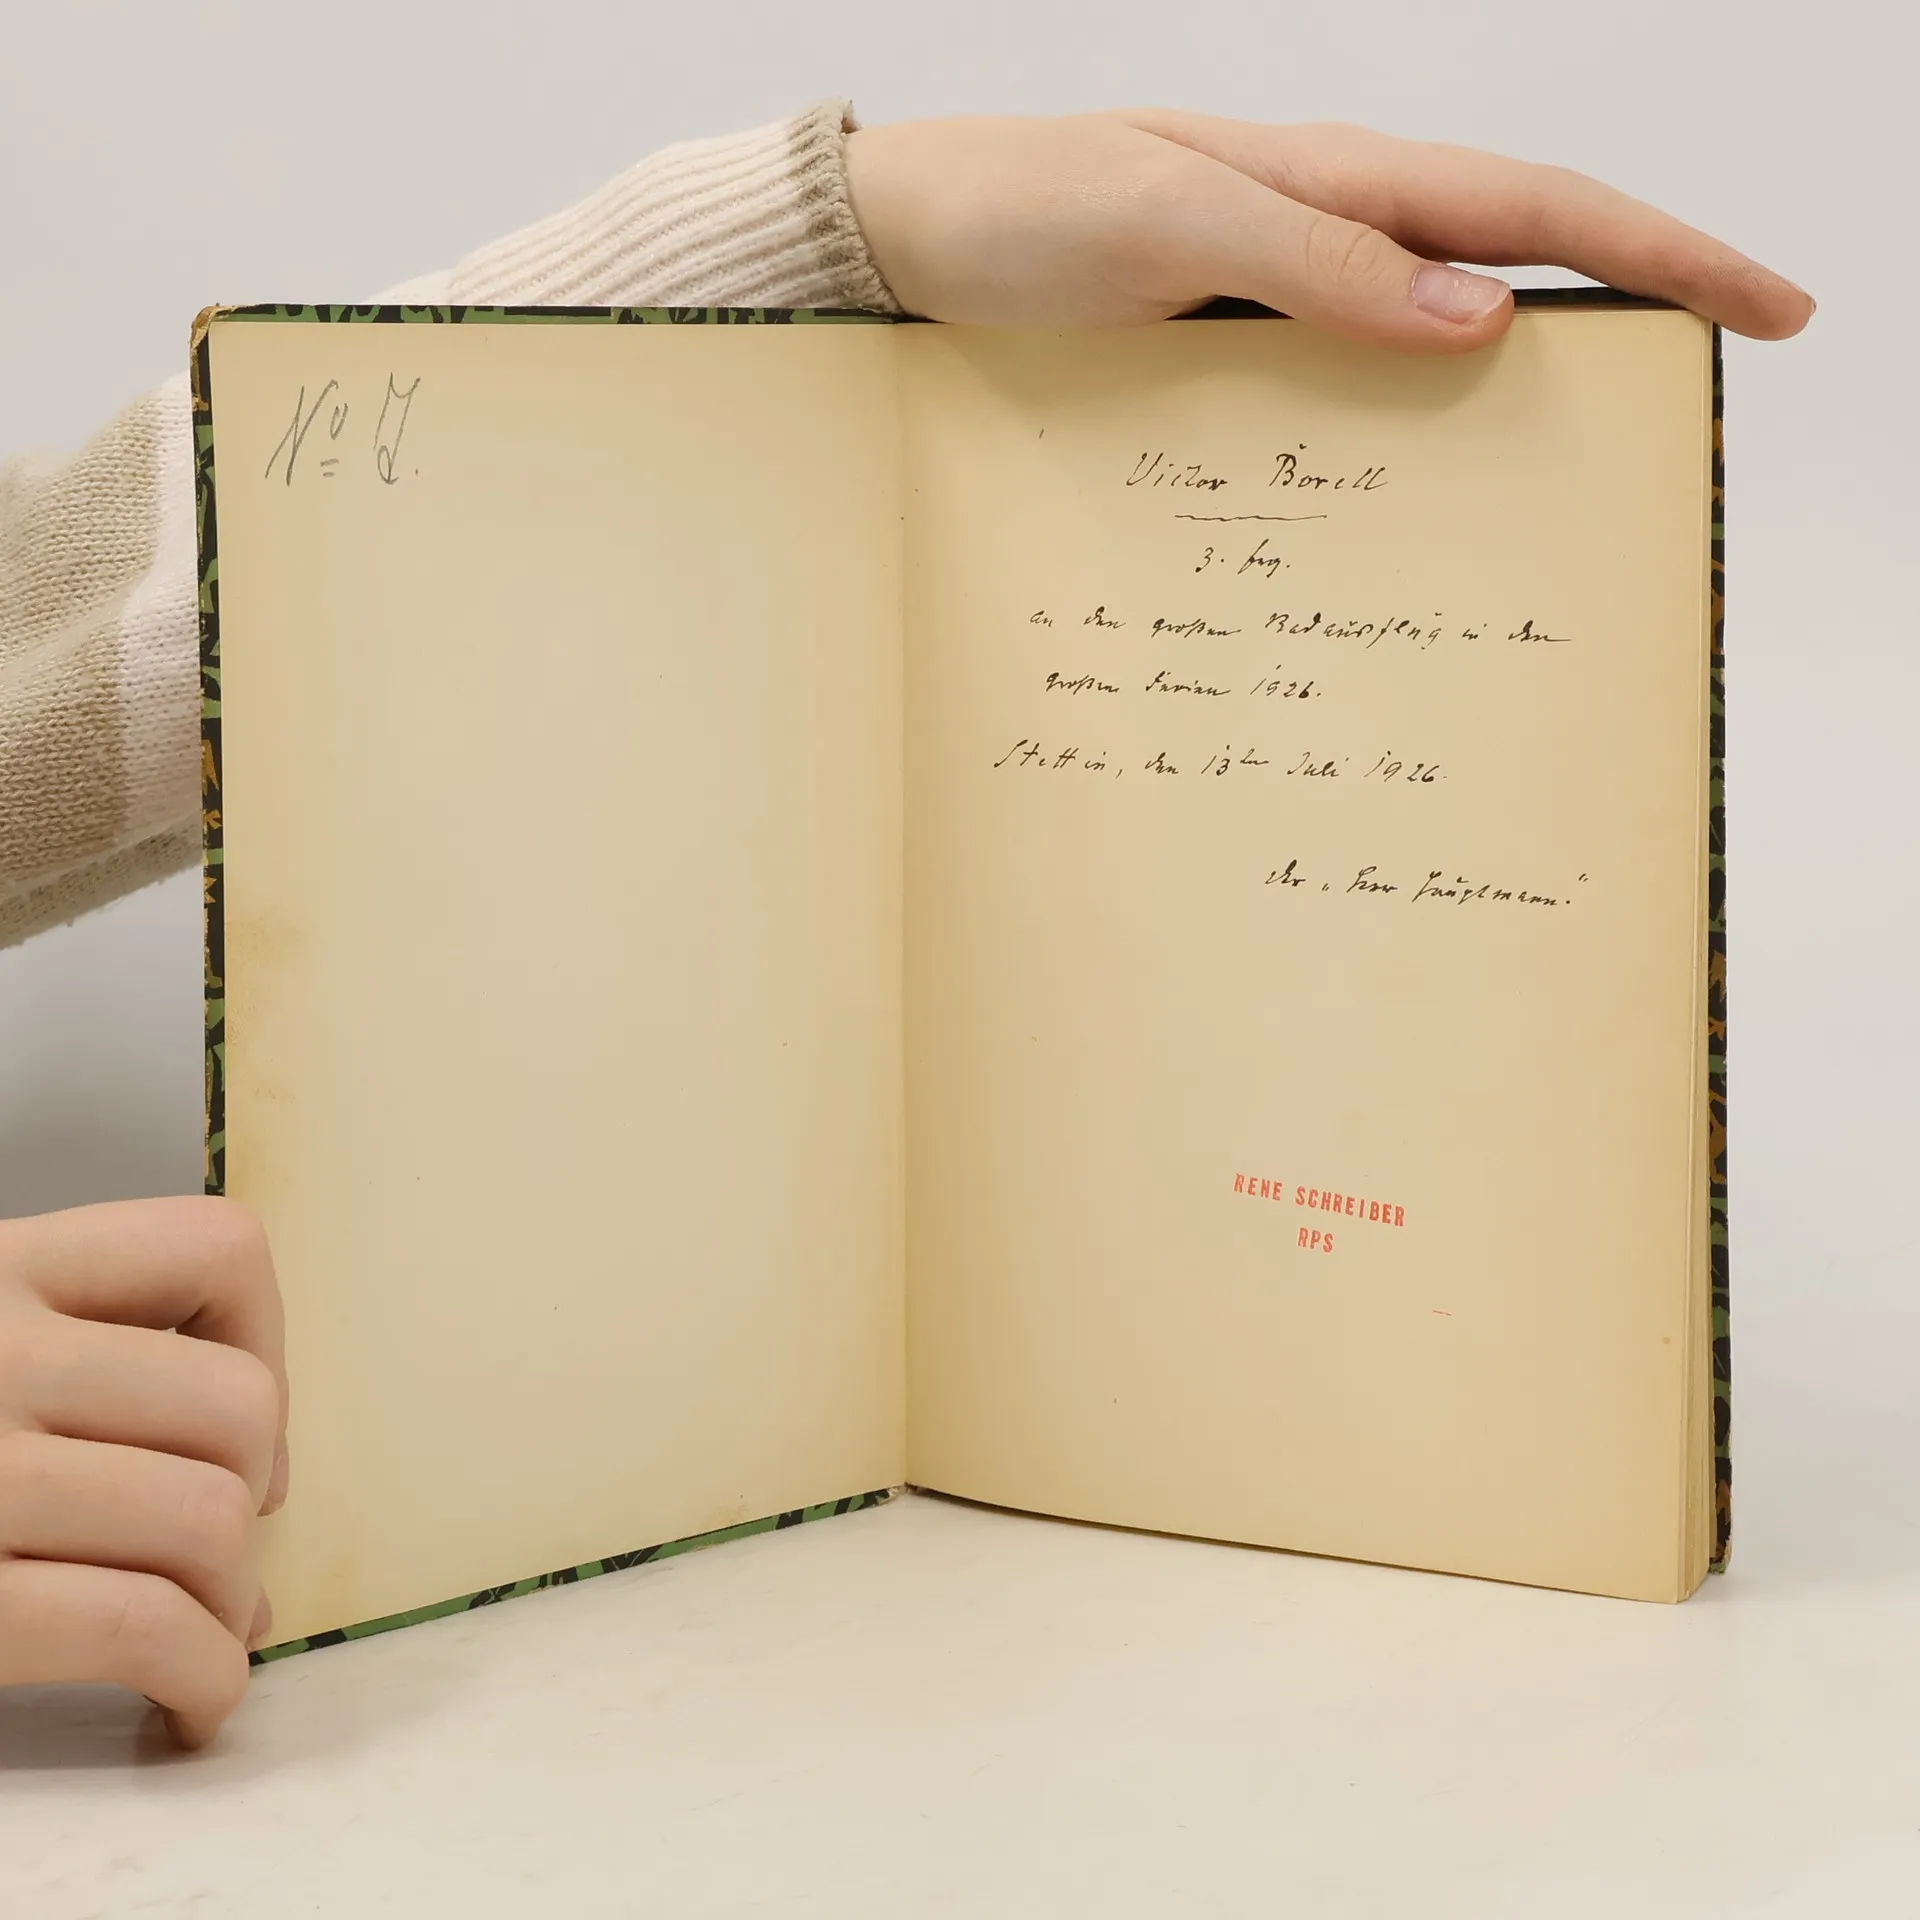 Nº 7.
Victor Borell
3. frg.
an den großen Radausflug in den
großen Ferien 1926.
Stettin, den 13ten Juli 1926.
der „Herr Hauptmann."
RENE SCHREIBER
RPS